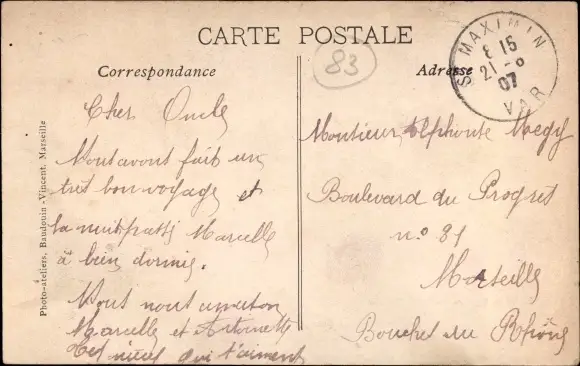 CARTE POSTALE
83
Correspondance
Adresse
St MAXIMIN
8 15
21 - 8
07
VAR
Photo-ateliers, Baudouin-Vincent, Marseille
Cher Oncle
Nous avont fait un
tres bon voyage et
la nuit passé Marcelle
à bien dormie.
Marcelle et Antoinette
qui t'aiment
Monsieur Alphonse Megy
Boulevard du Progret
n.o 81
Marseille
Bouches du Rhône